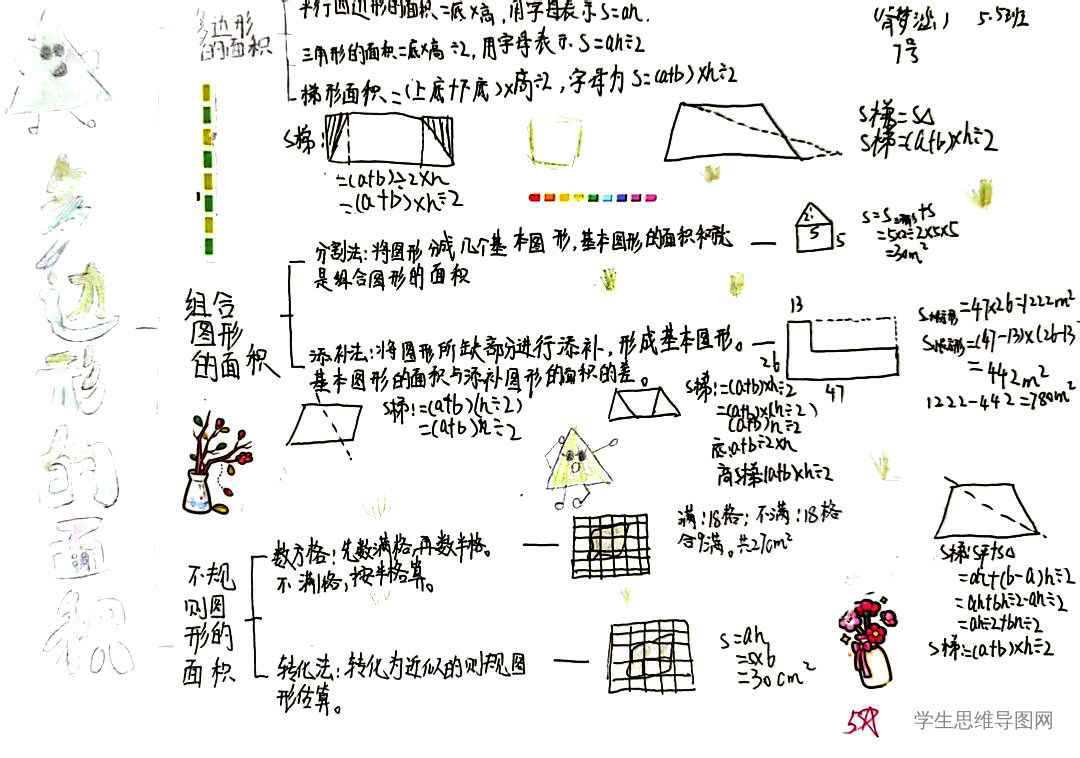 多边形的面积
多边形
的面积
平行四边形的面积=底×高，用字母表示S=ah.
三角形的面积=底×高÷2，用字母表示S=ah÷2
梯形面积=(上底+下底)×高÷2，字母为S=(a+b)×h÷2
5.5班
7号
S梯:
=(a+b)÷2×h
=(a+b)×h÷2
S梯=S△
S梯=(a+b)×h÷2
组合
图形
的面积
分割法：将图形分成几个基本图形，基本图形的面积和就
是组合图形的面积
2
5
5
=5×2÷2×5×5
=30m²
添补法：将图形所缺部分进行添补，形成基本图形。
基本图形的面积与添补图形的面积的差。
13
26
47
=47×26=1222m²
=(47-13)×(26-13
=442m²
1222-442=780m²
S梯:=(a+b)(h÷2)
=(a+b)h÷2
S梯:=(a+b)×h÷2
=(a+b)×(h÷2)
(a+b)h÷2
底:a+b÷2×h
高S梯:(a+b)×h÷2
不规
则图
形的
面积
数方格：先数满格，再数半格。
不满格，按半格算。
满：18格；不满：18格
合9满。共27cm²
转化法：转化为近似的则规图
形估算。
S=ah
=5×6
=30cm²
S梯:S平+S△
=ah+(b-a)h÷2
=ah+bh÷2-ah÷2
=ah÷2+bh÷2
S梯:=(a+b)×h÷2
5A
学生思维导图网